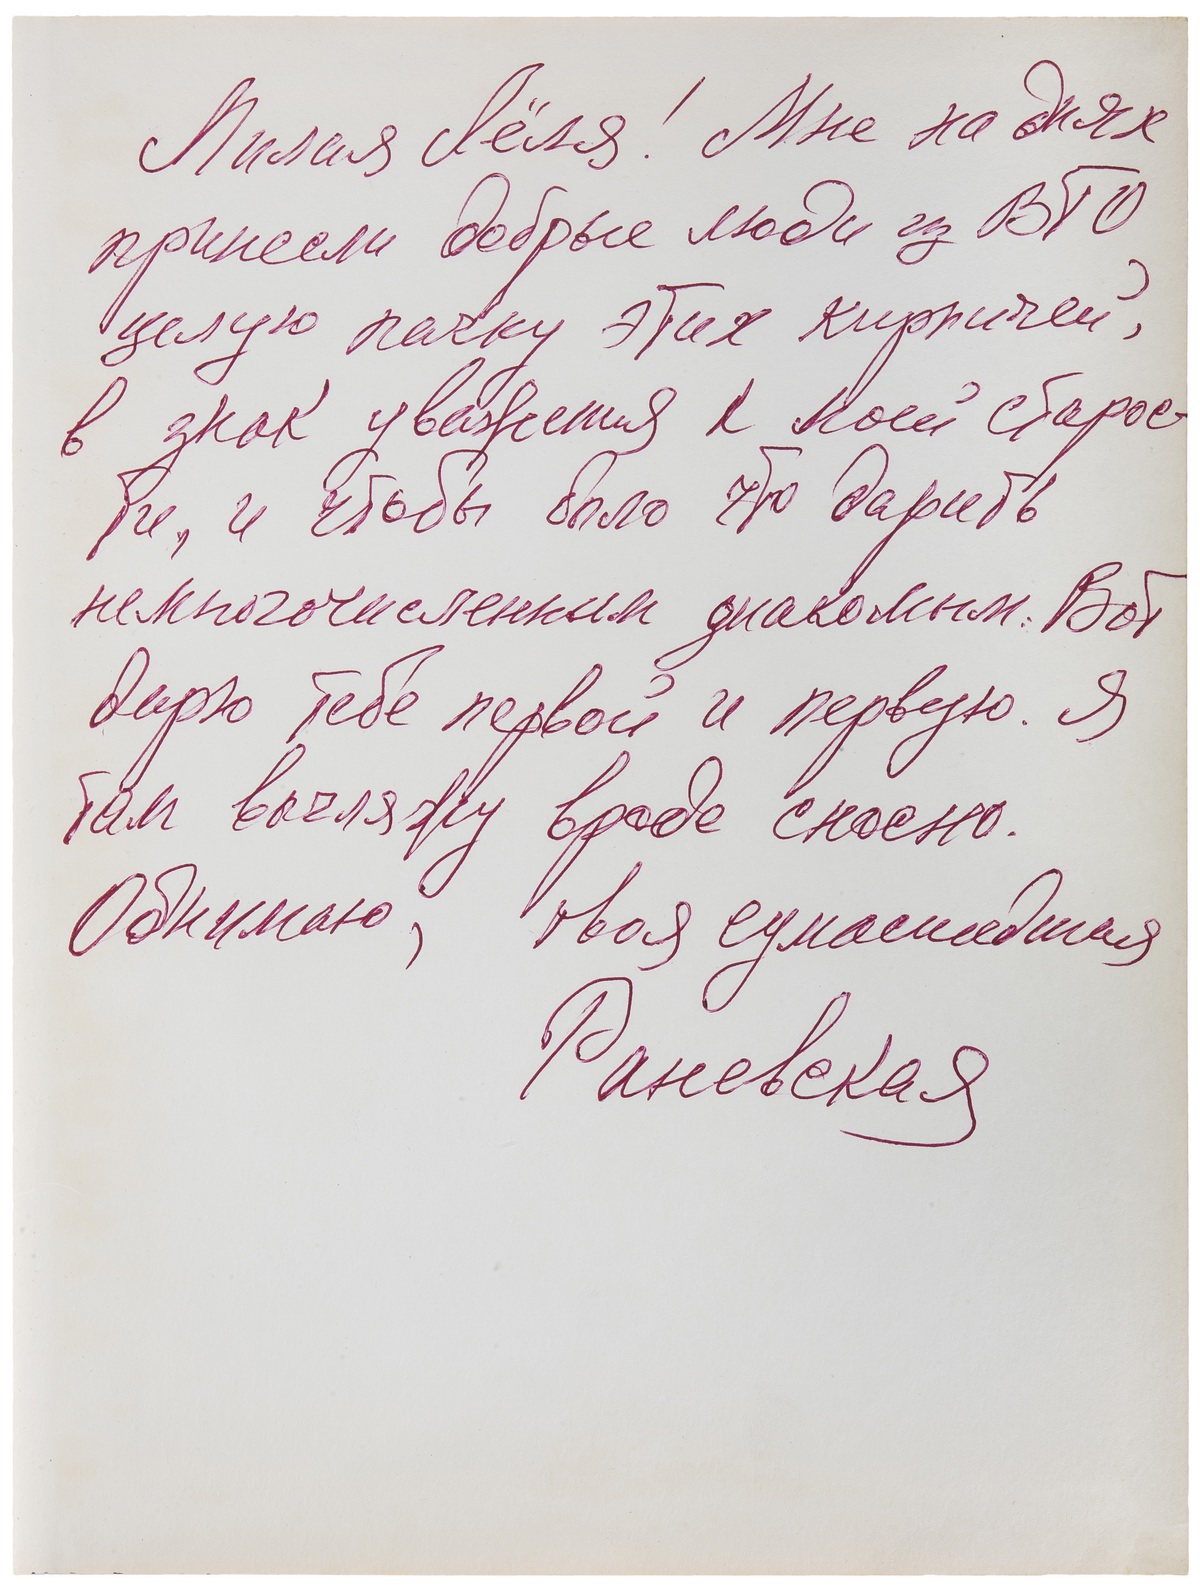 Милая Лёля! Мне на днях
принесли добрые люди из ВТО,
целую пачку этих кирпичей,
в знак уважения к моей старос-
ти, и чтобы было что дарить
немногочисленным знакомым. Вот
дарю тебе первой и первую. Я
там выгляжу вроде сносно.
Обнимаю, твоя сумасшедшая
Раневская